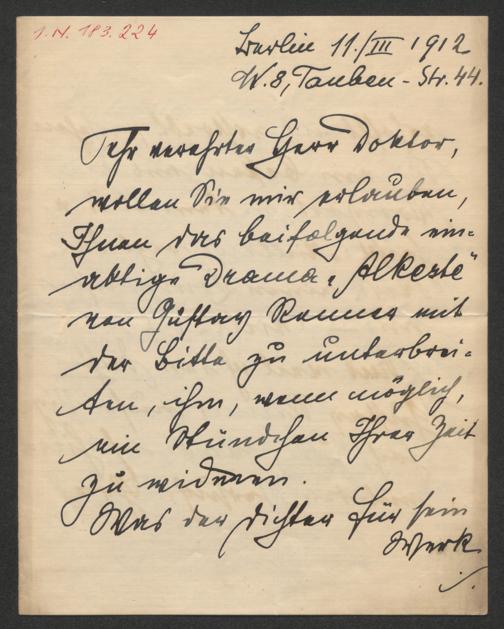 I.N. 183.224
Berlin 11./III 1912
W. 8, Tauben-Str. 44.
Sehr verehrter Herr Doktor,
wollen Sie mir erlauben,
Ihnen das beifolgende ein-
aktige Drama „Alkeste"
von Gustav Renner mit
der Bitte zu unterbrei-
ten, ihm, wenn möglich,
ein Stündchen Ihrer Zeit
zu widmen.
Was der Dichter für sein
Werk
./.